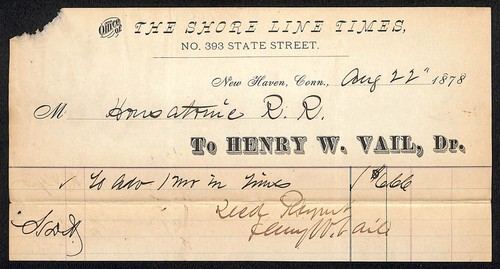 Office of THE SHORE LINE TIMES,
NO. 393 STATE STREET.
New Haven, Conn., Aug 22" 1878
M Housatonic R. R.
To HENRY W. VAIL, Dr.
✓ To adv 1 mo in Times $6.66
Recd Paymt
Henry W. Vail